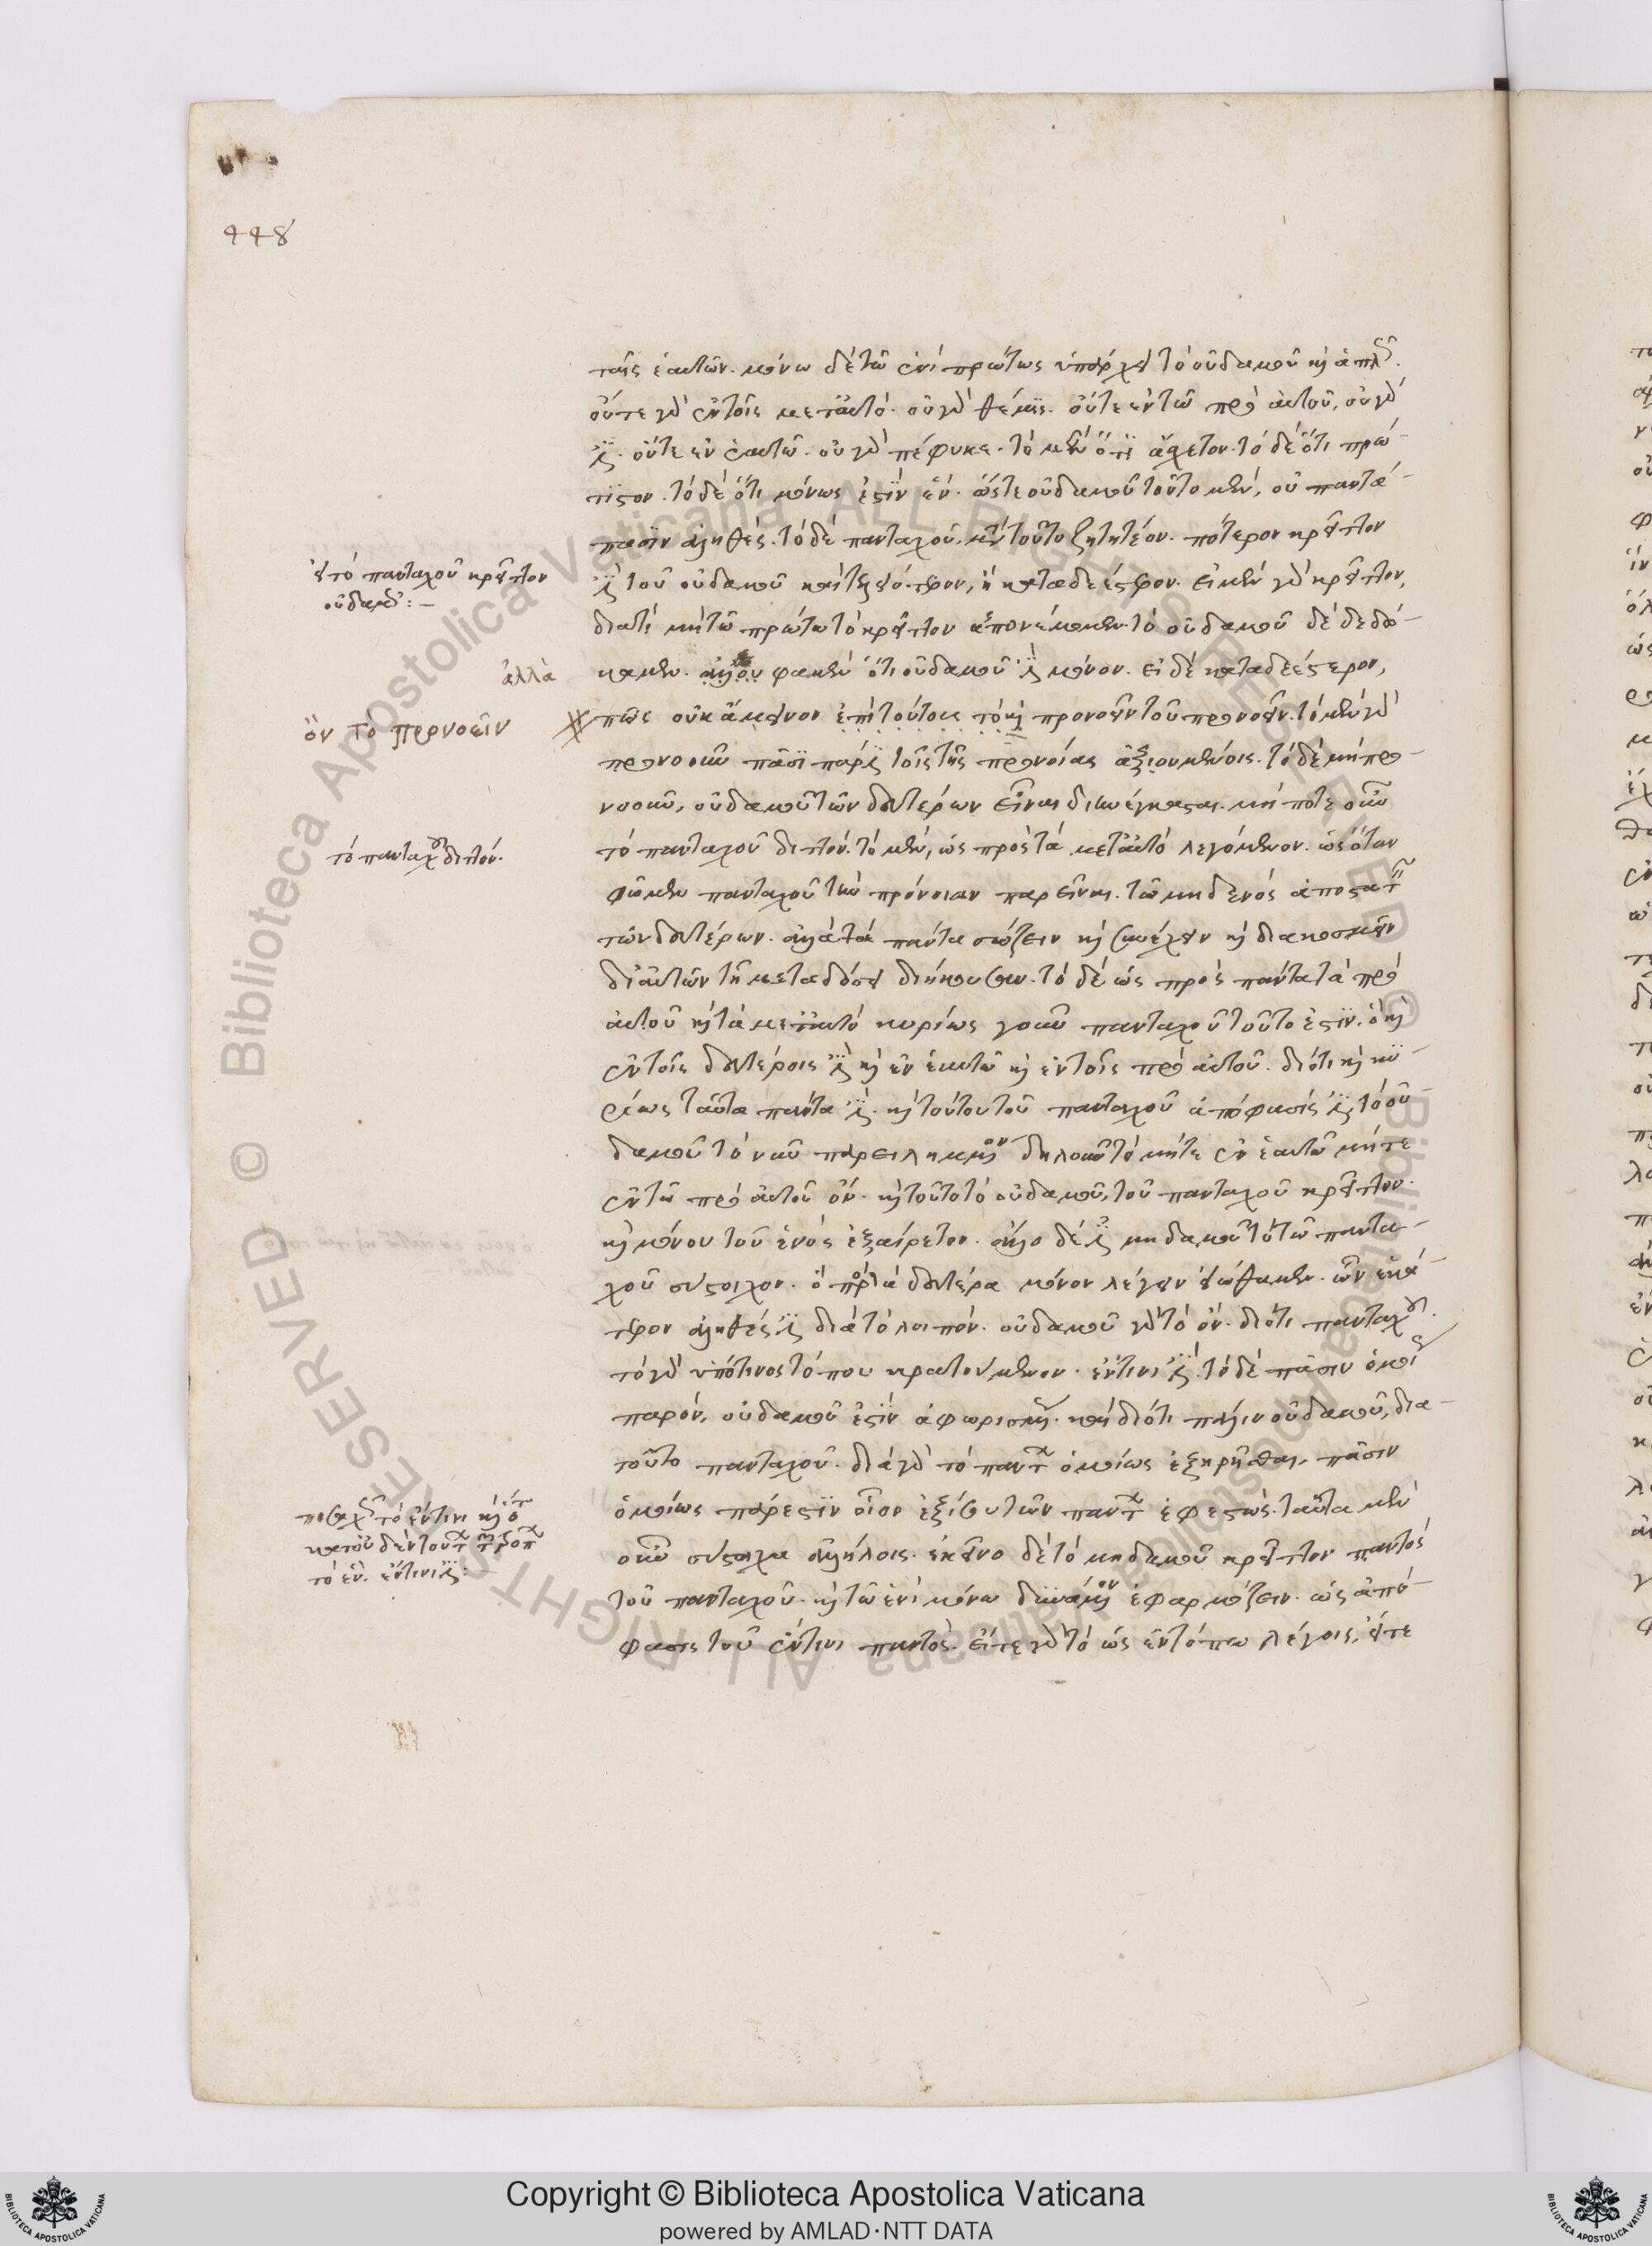 448
ταῖς ἑαυτῶν. μόνω δὲ τῶ ἑνὶ πρώτως ὑπάρχει τὸ οὐδαμοῦ κ̀ ἁπλῶς.
οὔτε γὰρ ἐν τοῖς μετ' αὐτό. οὐ γὰρ θέμις. οὔτε ἐν τῶ πρὸ αὐτοῦ, οὐ γὰρ
ἔστι. οὔτε ἐν ἑαυτῶ. οὐ γὰρ πέφυκε. τὸ μὲν ὅτι ἄσχετον. τὸ δὲ ὅτι πρώ-
τιστον. τὸ δὲ ὅτι μόνως ἐστὶν ἕν. ὥστε οὐδαμοῦ τοῦτο μὲν, οὖ παντά-
πασιν ἀληθές. τὸ δὲ πανταχοῦ, μετὰ τοῦτο ζητητέον. πότερον κρεῖττον
ἐστὶ τοῦ οὐδαμοῦ καὶ τελειότερον, ἢ καταδεέστερον. εἰ μὲν γὰρ κρεῖττον,
διατί μὴ τῶ πρώτω τὸ κρεῖττον ἀπονέμομεν. τὸ οὐδαμοῦ δὲ δεδώ-
καμεν. φαμὲν ὅτι οὐδαμοῦ ἐστὶ μόνον. εἰ δὲ καταδεέστερον,
πῶς οὐκ ἄμεινον ἐπὶ τούτοις τὸ μὴ προνοεῖν τοῦ προνοεῖν. τὸ μὲν γὰρ
προνοοῦν πᾶσι πάρεστι τοῖς τῆς προνοίας ἀξιουμένοις. τὸ δὲ μὴ προ-
νοοῦν, οὐδαμοῦ τῶν δευτέρων εἶναι διηνέγκασαι. μή ποτε οὖν
τὸ πανταχοῦ διττόν. τὸ μὲν, ὡς πρὸς τὰ μετ' αὐτὸ λεγόμενον. ὡς ὅταν
φῶμεν πανταχοῦ τὴν πρόνοιαν παρεῖναι. τῶ μηδενὸς ἀποστατεῖν
τῶν δευτέρων. ἀλλὰ τὰ πάντα σώζειν κ̀ συνέχειν κ̀ διακοσμεῖν
δι' αὐτῶν τῇ μεταδόσει διήκουσαν. τὸ δὲ ὡς πρὸς πάντα τὰ πρὸ
αὐτοῦ κ̀ τὰ μετ' αὐτό κυρίως γοῦν πανταχοῦ τοῦτο ἐστὶν. ὃ κ̀
ἐν τοῖς δευτέροις ἐστὶ κ̀ ἐν ἑαυτῶ κ̀ ἐν τοῖς πρὸ αὐτοῦ. διότι κ̀ κυ-
ρίως ταῦτα πάντα ἐστὶ. κ̀ τούτου τοῦ πανταχοῦ ἀπόφασίς ἐστι, τὸ οὐ-
δαμοῦ τὸ νῦν παρειλημμένον δηλοῦν τὸ μήτε ἐν ἑαυτῶ μήτε
ἐν τῶ πρὸ αὐτοῦ ὄν. κ̀ τοῦτο τὸ οὐδαμοῦ, τοῦ πανταχοῦ κρεῖττον.
κ̀ μόνου τοῦ ἑνὸς ἐξαίρετον. ἄλλο δὲ ἐστὶ μηδαμοῦ τὸ τῶ παντα-
χοῦ σύστοιχον. ὃ πρὸς τὰ δεύτερα μόνον λέγειν εἰώθαμεν. ὧν ἑκά-
τερον ἀληθές ἐστι διὰ τὸ λοιπόν. οὐδαμοῦ γὰρ τὸ ὄν. διότι πανταχοῦ.
τὸ γὰρ ὑπό τινος τόπου κρατούμενον. ἔν τινι ἐστὶ. τὸ δὲ πᾶσιν ὁμοίως
παρόν, οὐδαμοῦ ἐστὶν ἀφωρισμένως. καὶ διότι πάλιν οὐδαμοῦ, δια-
τοῦτο πανταχοῦ. διὰ γὰρ τὸ πάντων ὁμοίως ἐξηρῆσθαι, πᾶσιν
ὁμοίως πάρεστιν οἷον ἐξίσου τῶν πάντων ἐφεστώς. ταῦτα μὲν
οὖν σύστοιχα ἀλλήλοις. ἐκεῖνο δὲ τὸ μηδαμοῦ κρεῖττον παντὸς
τοῦ πανταχοῦ. κ̀ τῶ ἑνὶ μόνω δυνάμενον ἐφαρμόζειν. ὡς ἀπό-
φασις τοῦ ἔν τινι παντός. εἴτε γὰρ τὸ ὡς ἐν τόπω λέγοις, εἴτε
εἰ τὸ πανταχοῦ κρεῖττον
οὐδαμοῦ:–
ἀλλὰ
ὂν τὸ προνοεῖν
τὸ πανταχοῦ διττόν.
ποσαχῶς τὸ ἔν τινι κ̀ ὅτι
κατ' οὐδὲν τούτων τῶν τρόπων
τὸ ἓν. ἔν τινι ἐστὶ:–